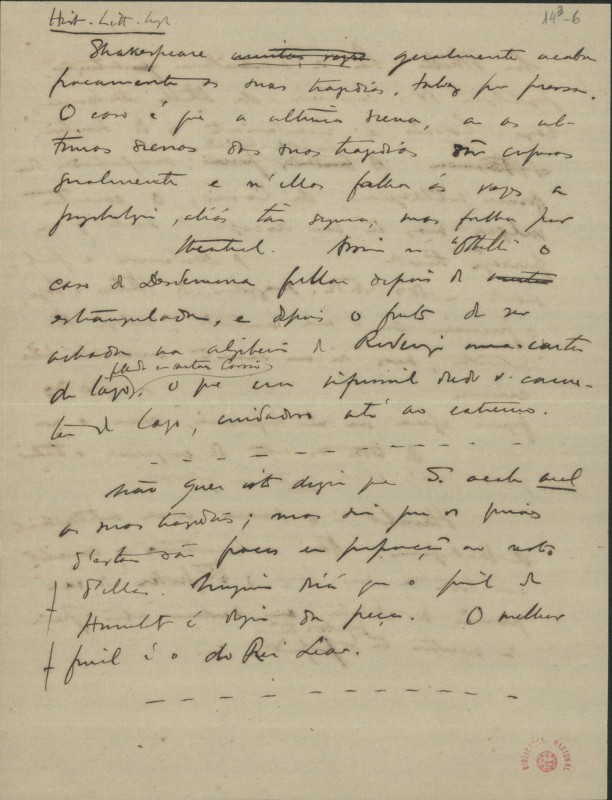 Hist. Litt. Ingl.
14³-6
Shakespeare muitas vezes geralmente acaba
fracamente as suas tragedias, talvez por pressa.
O caso é que a ultima scena, ou as ul-
timas scenas das suas tragedias são
geralmente e n'ellas falha ás vezes a
psychologia, aliás tão segura, mas falha por
Assim no "Othello" o
caso de Desdemona fallar depois de morta
estrangulada, e depois o facto de ser
achada na algibeira de Roderigo uma carta
de Iago, o que era dado o caracter
de Iago, cuidadoso até ao extremo.
Não quer isto dizer que S. acabe mal
as suas tragedias; mas sim que os finaes
d'estas são fracos em proporção ao resto
d'ellas. Ninguem dirá que o final de
Hamlet é digno da peça. O melhor
final é o do Rei Lear.
BIBLIOTECA NACIONAL